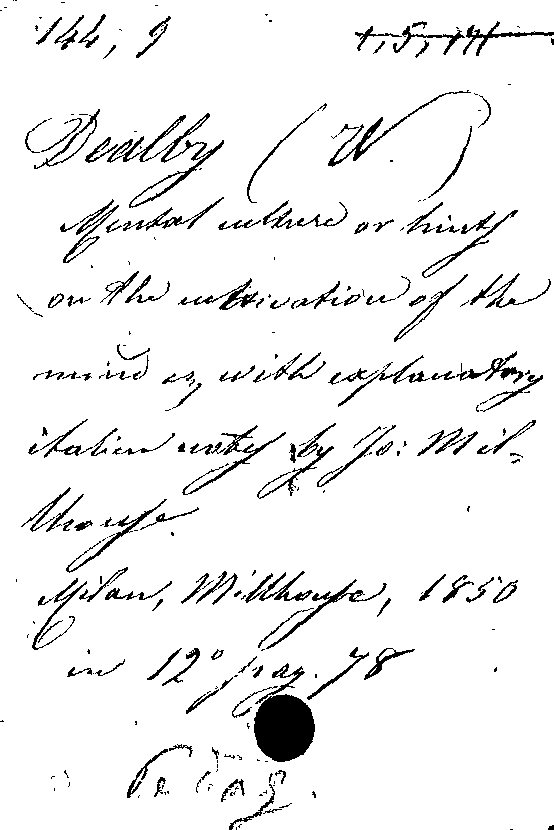 144, 9 1, 5, 171
Dealby (W.)
Mental culture or hints
on the cultivation of the
mind ez, with explanatory
italien notes by Jo: Mil=
lhouse.
Milan, Millhouse, 1850
in 12° pag. 78
Pedag.